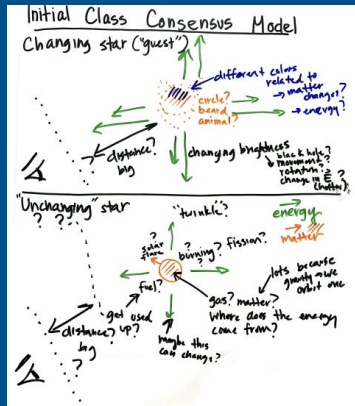 Initial Class Consensus Model
Changing star ("guest")
different colors
related to
→ matter
changes?
→ energy?
circle?
beard
animal?
distance?
big
changing brightness
black hole?
movement?
rotation?
change in E
(hotter)?
"Unchanging" star
? ? ?
"twinkle"?
energy
matter
?
solar
flare
?
burning?
?
fission?
fuel?
get used
up?
gas? matter?
Where does the energy
come from?
lots because
gravity → we
orbit one
distance?
big
?
maybe this
can change?